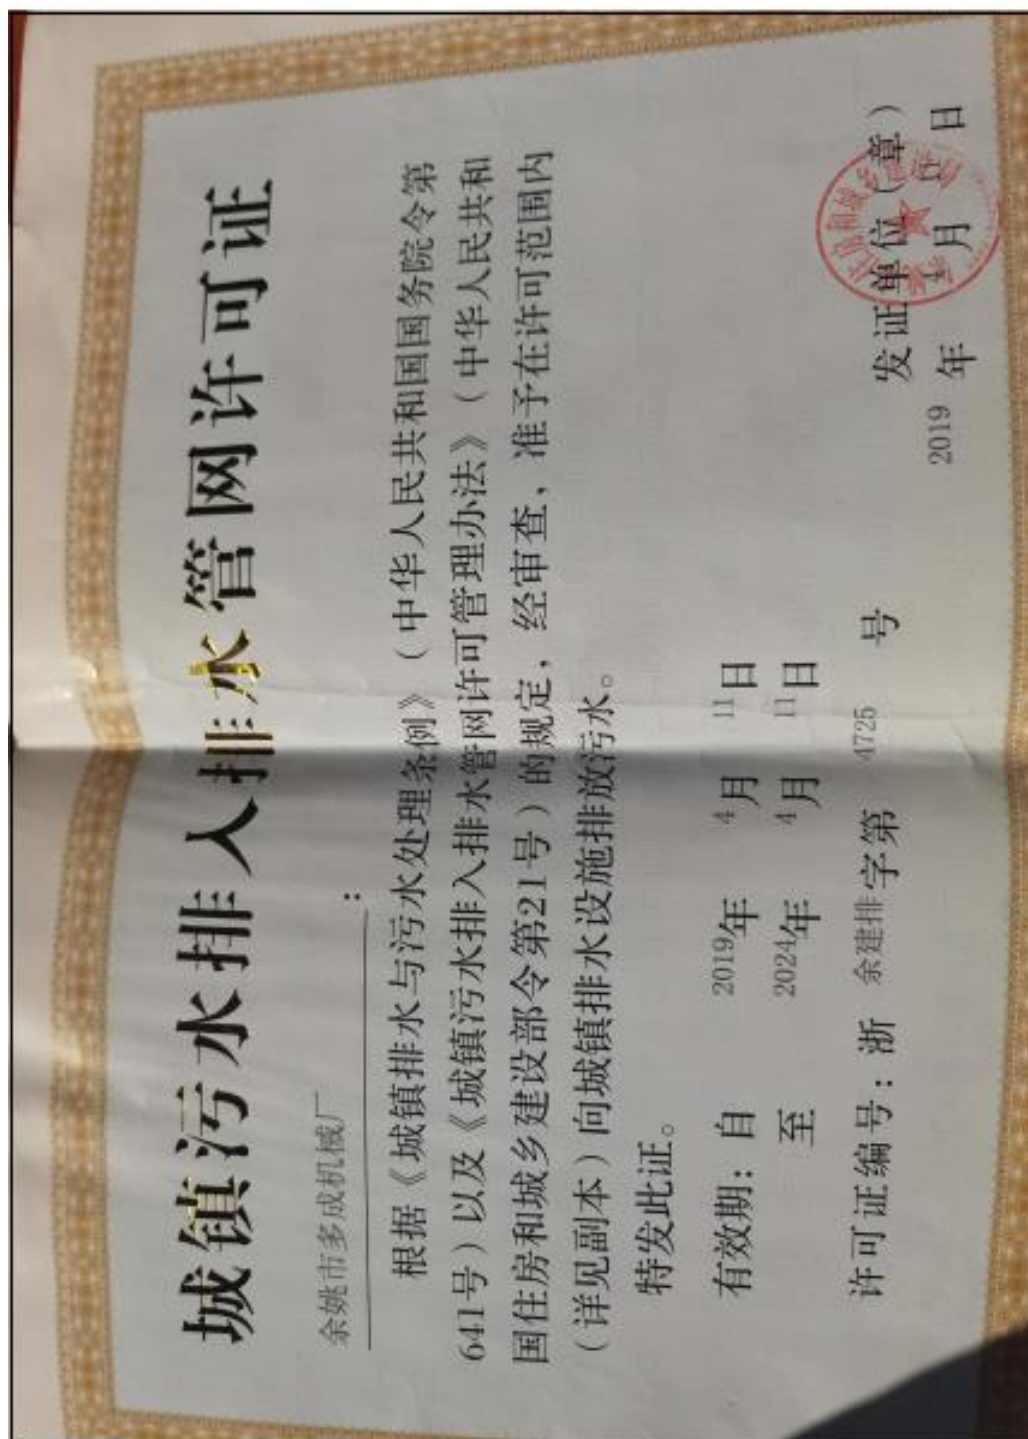 城镇污水排入排水管网许可证
余姚市多成机械厂：
根据《城镇排水与污水处理条例》（中华人民共和国国务院令第
641号）以及《城镇污水排入排水管网许可管理办法》（中华人民共和
国住房和城乡建设部令第21号）的规定，经审查，准予在许可范围内
（详见副本）向城镇排水设施排放污水。
特发此证。
有效期：自 2019年 4月 11日
至 2024年 4月 11日
许可证编号：浙 余建排字第 4725 号
发证单位（章）
2019年 4月 11日